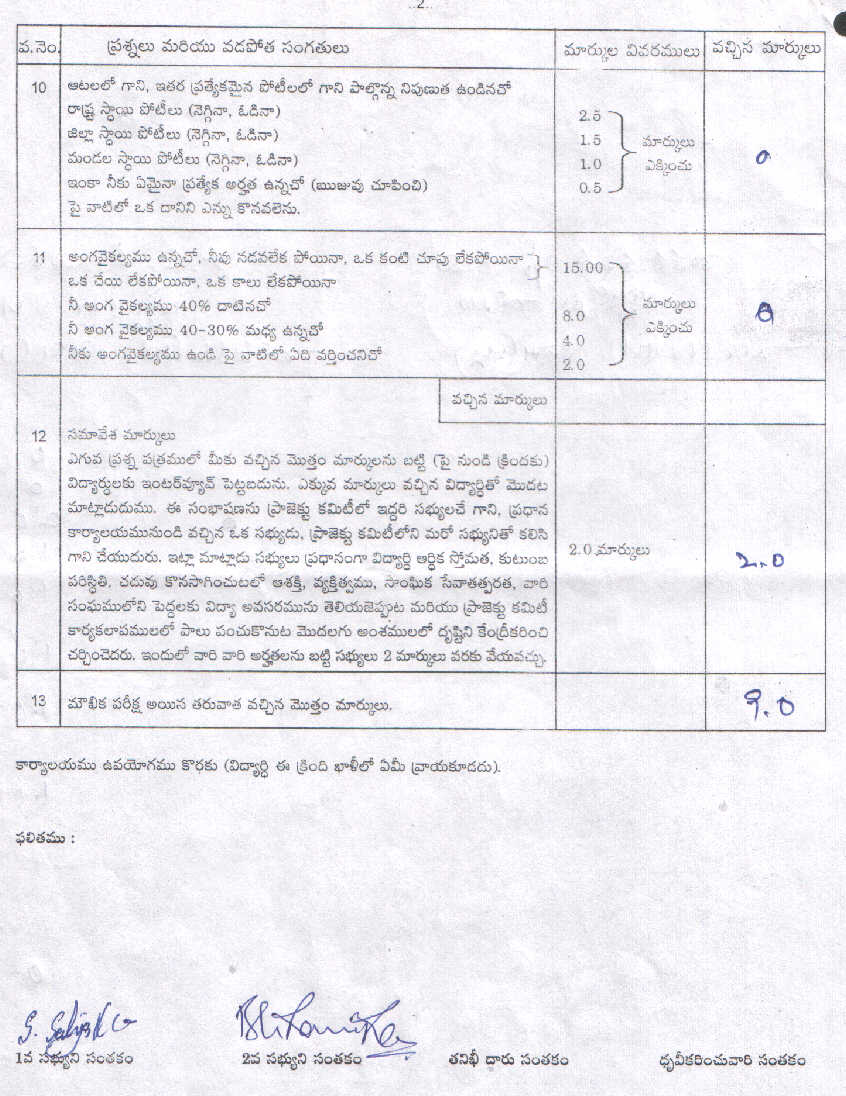 ..2..
వ.నెం. ప్రశ్నలు మరియు వడపోత సంగతులు మార్కుల వివరములు వచ్చిన మార్కులు
10 ఆటలలో గాని, ఇతర ప్రత్యేకమైన పోటీలలో గాని పాల్గొన్న నిపుణుత ఉండినచో
రాష్ట్ర స్ధాయి పోటీలు (నెగ్గినా, ఓడినా) 2.5
జిల్లా స్ధాయి పోటీలు (నెగ్గినా, ఓడినా) 1.5 మార్కులు
మండల స్ధాయి పోటీలు (నెగ్గినా, ఓడినా) 1.0 ఎక్కించు 0
ఇంకా నీకు ఏమైనా ప్రత్యేక అర్హత ఉన్నచో (ఋజువు చూపించి) 0.5
పై వాటిలో ఒక దానిని ఎన్ను కొనవలెను.
11 అంగవైకల్యము ఉన్నచో, నీవు నడవలేక పోయినా, ఒక కంటి చూపు లేకపోయినా 15.00
ఒక చేయి లేకపోయినా, ఒక కాలు లేకపోయినా
నీ అంగ వైకల్యము 40% దాటినచో 8.0 మార్కులు 0
నీ అంగ వైకల్యము 40-30% మధ్య ఉన్నచో 4.0 ఎక్కించు
నీకు అంగవైకల్యము ఉండి పై వాటిలో ఏది వర్తించనిచో 2.0
వచ్చిన మార్కులు
12 సమావేశ మార్కులు
ఎగువ ప్రశ్న పత్రములో మీకు వచ్చిన మొత్తం మార్కులను బట్టి (పై నుండి క్రిందకు)
విద్యార్ధులకు ఇంటర్‌వ్యూవ్ పెట్టబడును. ఎక్కువ మార్కులు వచ్చిన విద్యార్ధితో మొదట
మాట్లాడుదుము. ఈ సంభాషణను ప్రాజెక్టు కమిటీలో ఇద్దరి సభ్యులచే గాని, ప్రధాన
కార్యాలయమునుండి వచ్చిన ఒక సభ్యుడు, ప్రాజెక్టు కమిటీలోని మరో సభ్యునితో కలిసి
గాని చేయుదురు. ఇట్లా మాట్లాడు సభ్యులు ప్రధానంగా విద్యార్ధి ఆర్ధిక స్తోమత, కుటుంబ 2.0 మార్కులు 2.0
పరిస్థితి, చదువు కొనసాగించుటలో ఆశక్తి, వ్యక్తిత్వము, సాంఘిక సేవాతత్పరత, వారి
సంఘములోని పెద్దలకు విద్యా అవసరమును తెలియజెప్పుట మరియు ప్రాజెక్టు కమిటీ
కార్యకలాపములలో పాలు పంచుకొనుట మొదలగు అంశములలో దృష్టిని కేంద్రీకరించి
చర్చించెదరు. ఇందులో వారి వారి అర్హతలను బట్టి సభ్యులు 2 మార్కులు వరకు వేయవచ్చు.
13 మౌఖిక పరీక్ష అయిన తరువాత వచ్చిన మొత్తం మార్కులు. 9.0
కార్యాలయము ఉపయోగము కొరకు (విద్యార్ధి ఈ క్రింది ఖాళీలో ఏమీ వ్రాయకూడదు).
ఫలితము :
1వ సభ్యుని సంతకం 2వ సభ్యుని సంతకం తనిఖీ దారు సంతకం ధృవీకరించువారి సంతకం